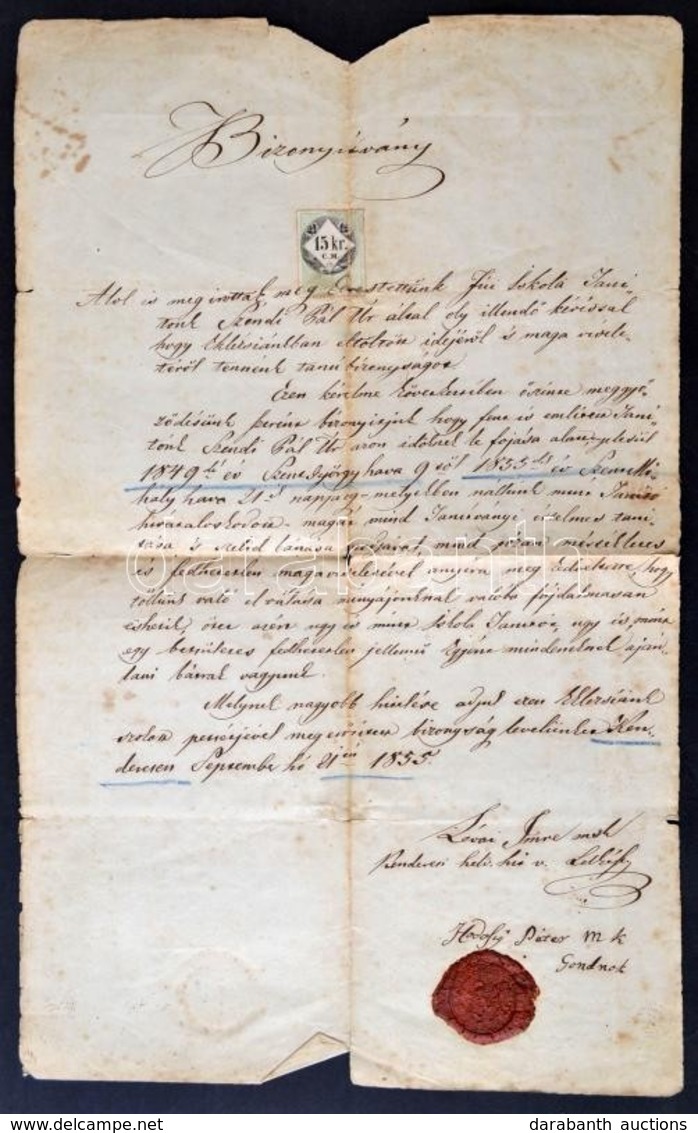 Bizonyitvány
15 kr.
C.M.
Alol is megirottak meg kerestettünk Fiu Iskola Tani-
tónk Szendi Pál Úr által oly illendő kéréssel
hogy Eklésiánkban eltöltött idejéről is maga visele-
téről tennénk tanubizonyságot.
Ezen kérelme következtiben őszinte meggyő-
ződésünk szerint bizonyitjuk hogy fent is emlitett Tani-
tónk Szendi Pál Úr azon időknek le fojása alatt
1849dik év Szent György hava 9 től 1855dik év Szent Mi-
hály hava 21ig napjáig - melyekben nálunk mint Tanitó
magát mind Tanitványi értelmes tani-
tása is szelid bánása mind józan mérsékletes
is fedhetetlen magaviseletével annyira meg kedveltette, hogy
tőllünk való el válása fojdalmasan
esheik azért ugy is mint Iskola Tanitót, ugy is mint
egy becsületes fedhetetlen jellemü Egyént mindenkinek aján-
lani bátrak vagyunk.
Melynek nagyobb hitelére adjuk ezen Eklésiánk
szokott petsétjével megerősitett bizonyság levelünket Ken-
deresen September hó 21én 1855.
Lévai Imre mk
Kenderesi helv. hit v. Lelkész
Hodosy Péter mk
Gondnok
darabanth
www.delcampe.net
darabanth auctions